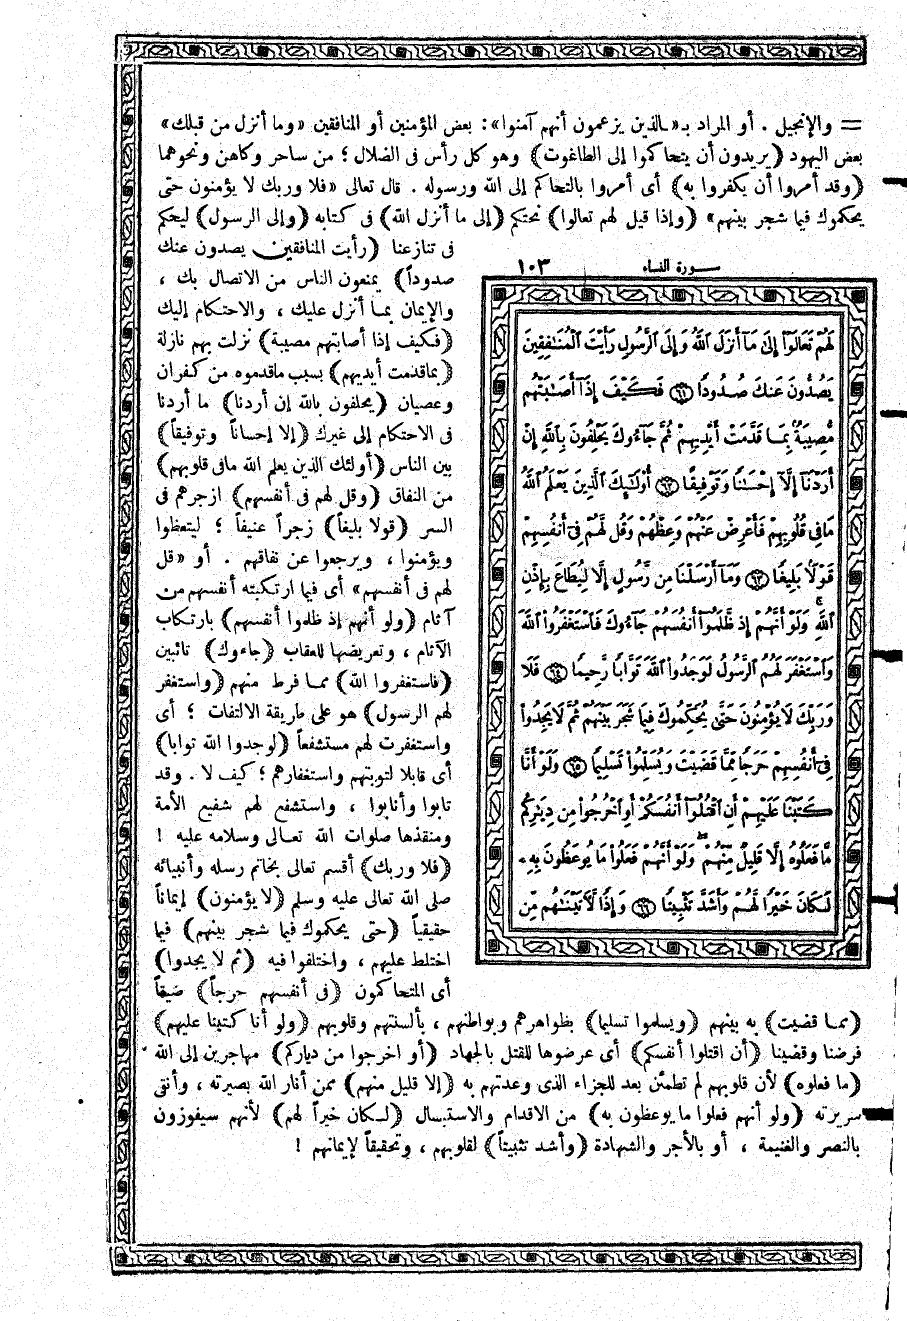 = والإنجيل . أو المراد بـ«ـالذين يزعمون أنهم آمنوا»: بعض المؤمنين أو المنافقين «وما أنزل من قبلك»
بعض اليهود (يريدون أن يتحاكموا إلى الطاغوت) وهو كل رأس فى الضلال ؛ من ساحر وكاهن ونحوهما
(وقد أمروا أن يكفروا به) أى أمروا بالتحاكم إلى الله ورسوله . قال تعالى «فلا وربك لا يؤمنون حتى
يحكموك فيما شجر بينهم» (وإذا قيل لهم تعالوا) نحتكم (إلى ما أنزل الله) فى كتابه (وإلى الرسول) ليحكم
فى تنازعنا (رأيت المنافقين يصدون عنك
صدوداً) يمنعون الناس من الاتصال بك ،
والإيمان بمـا أنزل عليك ، والاحتكام إليك
(فكيف إذا أصابتهم مصيبة) نزلت بهم نازلة
(بما قدمت أيديهم) بسبب ماقدموه من كفران
وعصيان (يحلفون بالله إن أردنا) ما أردنا
فى الاحتكام إلى غيرك (إلا إحساناً وتوفيقاً)
بين الناس (أولئك الذين يعلم الله مافى قلوبهم)
من النفاق (وقل لهم فى أنفسهم) ازجرهم فى
السر (قولا بليغاً) زجراً عنيفاً ؛ ليتعظوا
ويؤمنوا ، ويرجعوا عن نفاقهم . أو «قل
لهم فى أنفسهم» أى فيما ارتكبته أنفسهم من
آثام (ولو أنهم إذ ظلموا أنفسهم) بارتكاب
الآثام ، وتعريضها للعقاب (جاءوك) تائبين
(فاستغفروا الله) ممـا فرط منهم (واستغفر
لهم الرسول) هو على طريقة الالتفات ؛ أى
واستغفرت لهم مستشفعاً (لوجدوا الله توابا)
أى قابلا لتوبتهم واستغفارهم ؛ كيف لا . وقد
تابوا وأنابوا ، واستشفع لهم شفيع الأمة
ومنقذها صلوات الله تعـالى وسلامه عليه !
(فلا وربك) أقسم تعالى بخاتم رسله وأنبيائه
صلى الله تعالى عليه وسلم (لا يؤمنون) إيماناً
حقيقياً (حتى يحكموك فيما شجر بينهم) فيما
اختلط عليهم ، واختلفوا فيه (ثم لا يجدوا)
أى المتحاكمون (فى أنفسهم حرجاً) ضيقاً
سورة النساء ١٠٣
لَهُمْ تَعَالَوْا۟ إِلَىٰ مَآ أَنزَلَ ٱللَّهُ وَإِلَى ٱلرَّسُولِ رَأَيْتَ ٱلْمُنَـٰفِقِينَ
يَصُدُّونَ عَنكَ صُدُودًا ٦١ فَكَيْفَ إِذَآ أَصَـٰبَتْهُم
مُّصِيبَةٌۢ بِمَا قَدَّمَتْ أَيْدِيهِمْ ثُمَّ جَآءُوكَ يَحْلِفُونَ بِٱللَّهِ إِنْ
أَرَدْنَآ إِلَّآ إِحْسَـٰنًا وَتَوْفِيقًا ٦٢ أُو۟لَـٰٓئِكَ ٱلَّذِينَ يَعْلَمُ ٱللَّهُ
مَا فِى قُلُوبِهِمْ فَأَعْرِضْ عَنْهُمْ وَعِظْهُمْ وَقُل لَّهُمْ فِىٓ أَنفُسِهِمْ
قَوْلًۢا بَلِيغًا ٦٣ وَمَآ أَرْسَلْنَا مِن رَّسُولٍ إِلَّا لِيُطَاعَ بِإِذْنِ
ٱللَّهِ ۚ وَلَوْ أَنَّهُمْ إِذ ظَّلَمُوٓا۟ أَنفُسَهُمْ جَآءُوكَ فَٱسْتَغْفَرُوا۟ ٱللَّهَ
وَٱسْتَغْفَرَ لَهُمُ ٱلرَّسُولُ لَوَجَدُوا۟ ٱللَّهَ تَوَّابًا رَّحِيمًا ٦٤ فَلَا
وَرَبِّكَ لَا يُؤْمِنُونَ حَتَّىٰ يُحَكِّمُوكَ فِيمَا شَجَرَ بَيْنَهُمْ ثُمَّ لَا يَجِدُوا۟
فِىٓ أَنفُسِهِمْ حَرَجًا مِّمَّا قَضَيْتَ وَيُسَلِّمُوا۟ تَسْلِيمًا ٦٥ وَلَوْ أَنَّا
كَتَبْنَا عَلَيْهِمْ أَنِ ٱقْتُلُوٓا۟ أَنفُسَكُمْ أَوِ ٱخْرُجُوا۟ مِن دِيَـٰرِكُم
مَّا فَعَلُوهُ إِلَّا قَلِيلٌ مِّنْهُمْ ۖ وَلَوْ أَنَّهُمْ فَعَلُوا۟ مَا يُوعَظُونَ بِهِۦ
لَكَانَ خَيْرًا لَّهُمْ وَأَشَدَّ تَثْبِيتًا ٦٦ وَإِذًا لَّـَٔاتَيْنَـٰهُم مِّن
(ممـا قضيت) به بينهم (ويسلموا تسليما) بظواهرهم وبواطنهم ، بألسنتهم وقلوبهم (ولو أنا كتبنا عليهم)
فرضنا وقضينا (أن اقتلوا أنفسكم) أى عرضوها للقتل بالجهاد (أو اخرجوا من دياركم) مهاجرين إلى الله
(ما فعلوه) لأن قلوبهم لم تطمئن بعد للجزاء الذى وعدتهم به (إلا قليل منهم) ممن أنار الله بصيرته ، وأنقى
سريرته (ولو أنهم فعلوا ما يوعظون به) من الاقدام والاستبسال (لـكان خيراً لهم) لأنهم سيفوزون
بالنصر والغنيمة ، أو بالأجر والشهادة (وأشد تثبيتاً) لقلوبهم ، وتحقيقاً لإيمانهم !